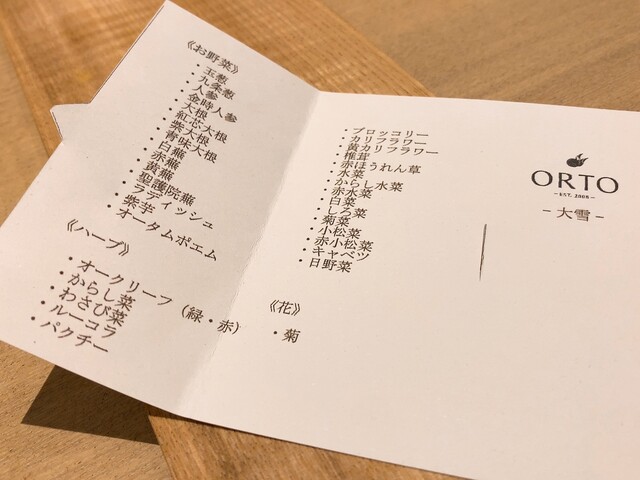 《お野菜》
・玉葱
・九条葱
・人参
・金時人参
・大根
・紅芯大根
・紫大根
・青味大根
・白蕪
・赤蕪
・黄蕪
・聖護院蕪
・ラディッシュ
・紫芋
・オータムポエム
・ブロッコリー
・カリフラワー
・黄カリフラワー
・椎茸
・赤ほうれん草
・水菜
・からし水菜
・赤水菜
・白菜
・しろ菜
・菊菜
・小松菜
・赤小松菜
・キャベツ
・日野菜
《ハーブ》
・オークリーフ（緑・赤）
・からし菜
・わさび菜
・ルーコラ
・パクチー
《花》
・菊
ORTO
- EST. 2008 -
- 大雪 -